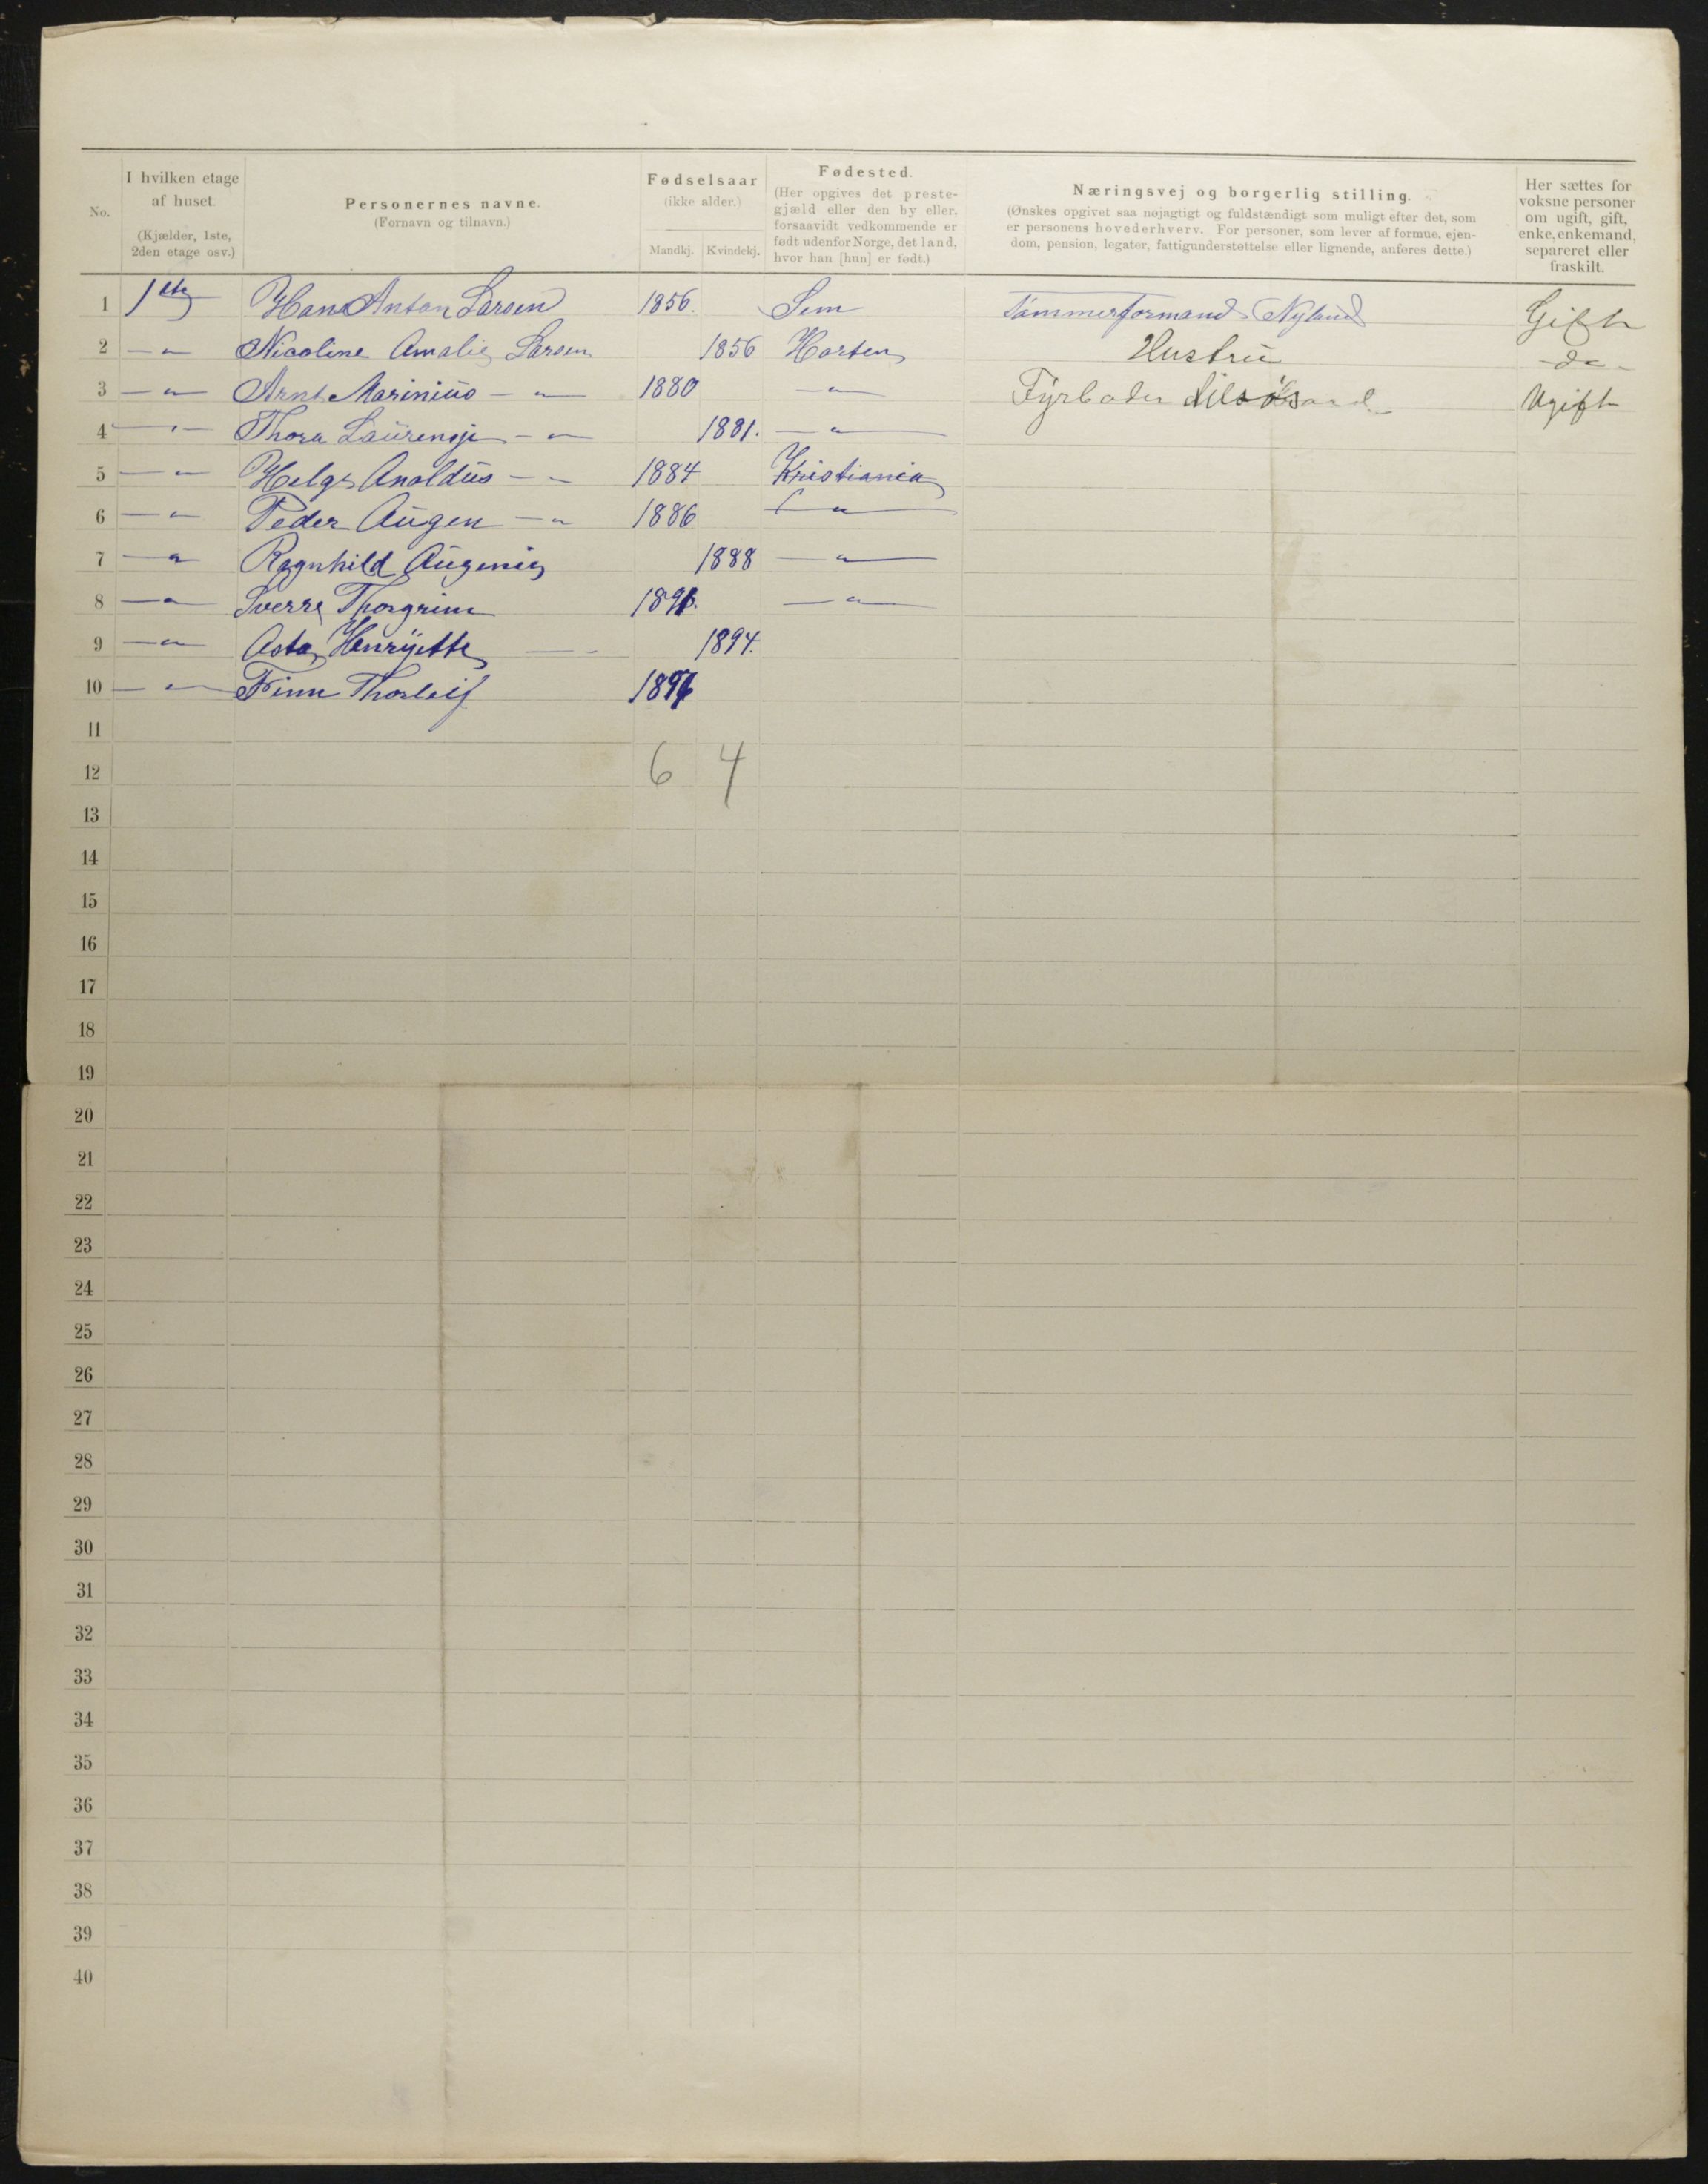 No.
I hvilken etage af huset.
(Kjælder, 1ste, 2den etage osv.)
Personernes navne.
(Fornavn og tilnavn.)
Fødselsaar
(ikke alder.)
Mandkj. Kvindekj.
Fødested.
(Her opgives det preste-
gjæld eller den by eller,
forsaavidt vedkommende er
født udenfor Norge, det land,
hvor han [hun] er født.)
Næringsvej og borgerlig stilling.
(Ønskes opgivet saa nøjagtigt og fuldstændigt som muligt efter det, som
er personens hovederhverv. For personer, som lever af formue, ejen-
dom, pension, legater, fattigunderstøttelse eller lignende, anføres dette.)
Her sættes for
voksne personer
om ugift, gift,
enke, enkemand,
separeret eller
fraskilt.
1 1ste Hans Anton Larsen 1856. Sem Tømmerformand Nyland Gift
2 — " — Nicoline Amalie Larsen 1856 Horten Hustrü - do -
3 — " — Arnt Marinius — " — 1880 — " — Fyrbøder Ugift
4 — " — Thora Laurensje — " — 1881. — " —
5 — " — Helge Anoldus — " — 1884 Kristiania
6 — " — Peder Augen — " — 1886 — " —
7 — " — Ragnhild Augenie 1888 — " —
8 — " — Sverre Thorgrim — " —
9 — " — Asta Henrijette — 1894.
10 — " — Finn Thorleif
11
12 6 4
13
14
15
16
17
18
19
20
21
22
23
24
25
26
27
28
29
30
31
32
33
34
35
36
37
38
39
40